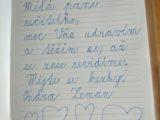 Milá paní
učitelko,
moc Vás zdravím
a těším se, až
se zase uvidíme.
Mějte se hezky,
Jindra Zeman